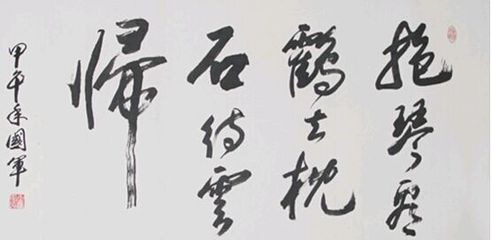 抱琴看
鶴去枕
石待雲
歸
甲午年國軍